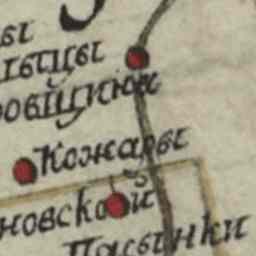 ы
льцы
ровщики
Кожары
новской
Пасынки